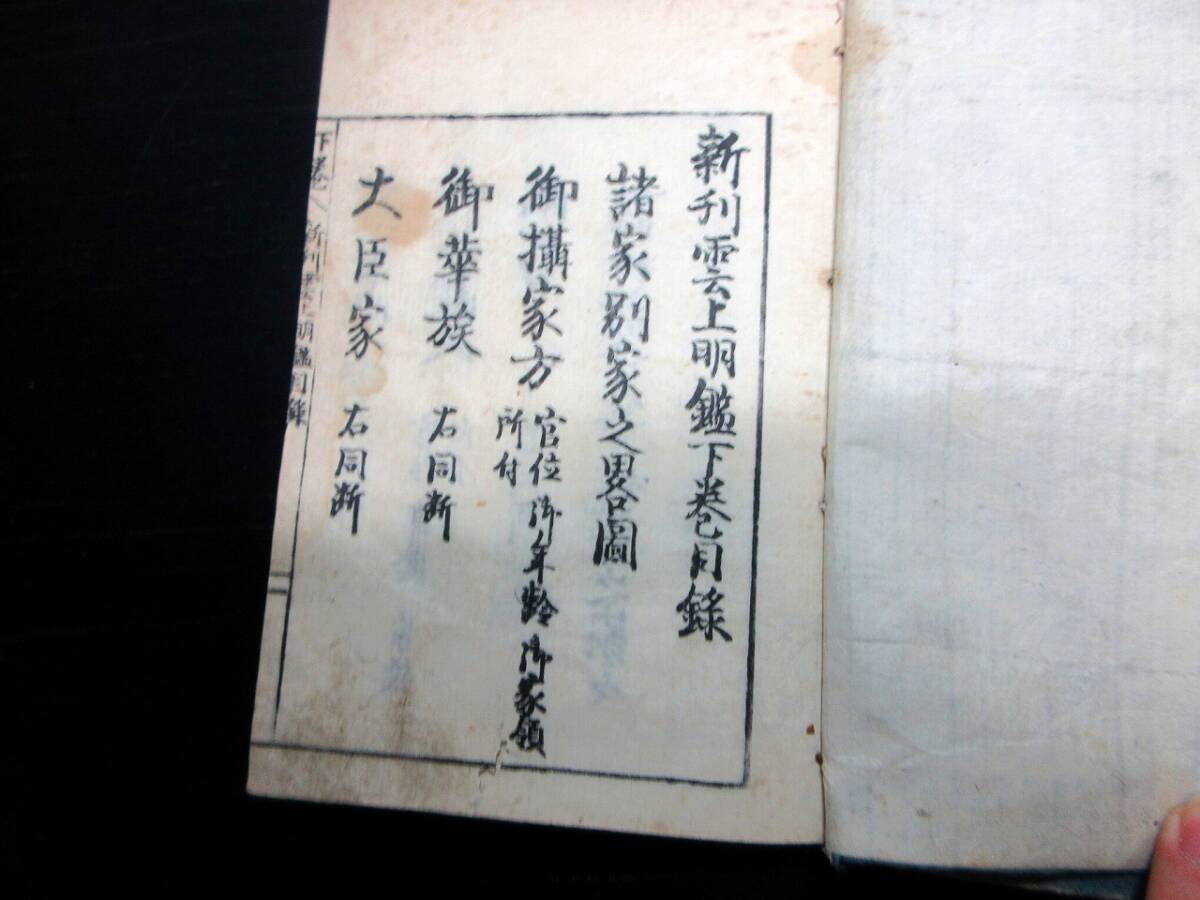 新刋雲上明鑑下巻目録
諸家別家之畧圖
御攝家方 官位御年齡御家領
所付
御華族 右同断
大臣家 右同断
下巻 新刋雲上明鑑目録